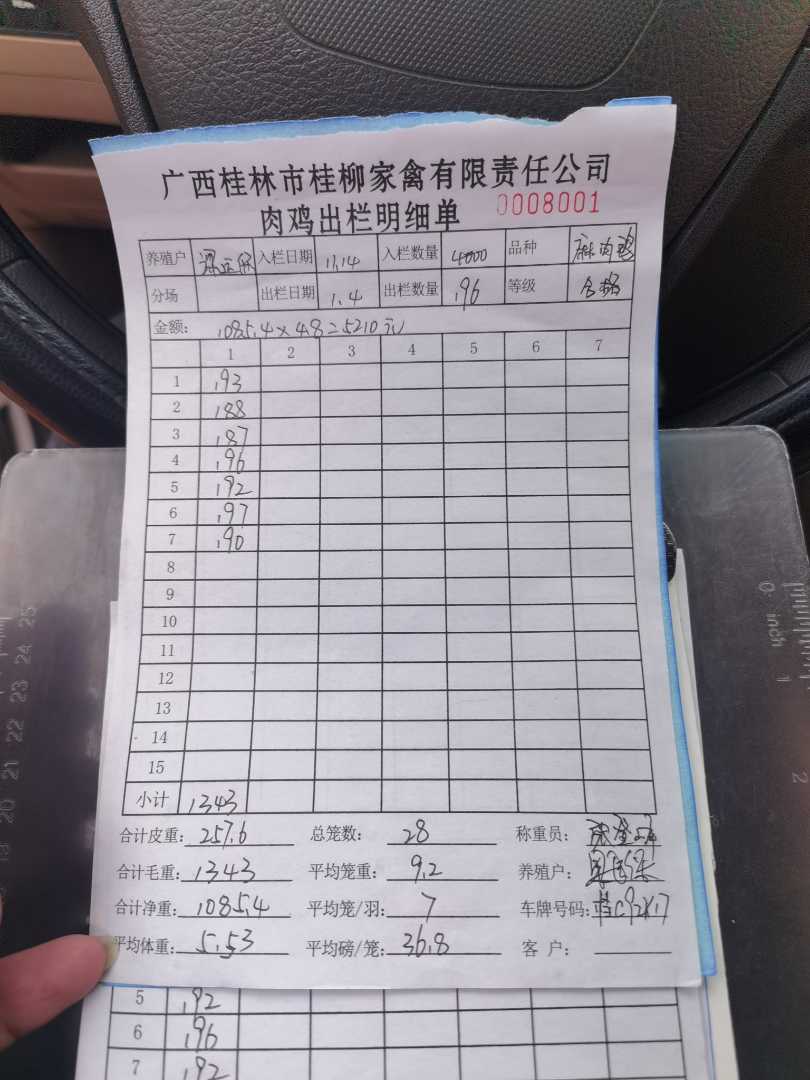 广西桂林市桂柳家禽有限责任公司
肉鸡出栏明细单 0008001
养殖户 入栏日期 11.14 入栏数量 4000 品种 麻肉鸡
分场 出栏日期 1.4 出栏数量 196 等级 合格
金额: 1085.4×4.8=5210元
1 2 3 4 5 6 7
1 193
2 188
3 187
4 196
5 192
6 197
7 190
8
9
10
11
12
13
14
15
小计 1343
合计皮重: 257.6 总笼数: 28 称重员:
合计毛重: 1343 平均笼重: 9.2 养殖户:
合计净重: 1085.4 平均笼/羽: 7 车牌号码:
平均体重: 5.53 平均磅/笼: 36.8 客 户:
5 192
6 196
7 192
0 inch 1
2
25
24
23
22
21
20
19